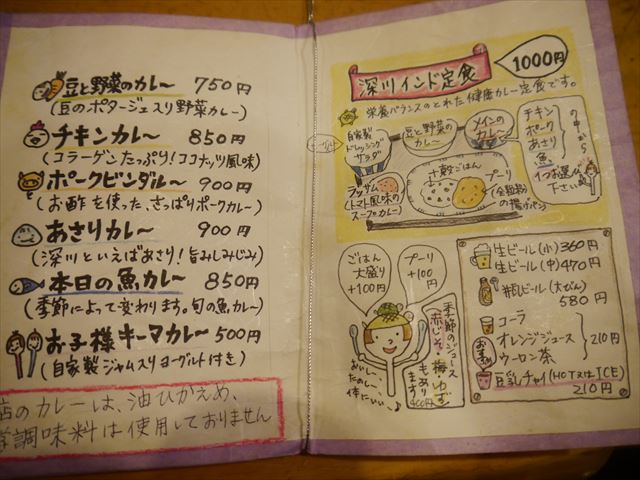 豆と野菜のカレー 750円
(豆のポタージュ入り野菜カレー)
チキンカレー 850円
(コラーゲンたっぷり!ココナッツ風味)
ポークビンダルー 900円
(お酢を使った、さっぱりポークカレー)
あさりカレー 900円
(深川といえばあさり!旨みしみじみ)
本日の魚カレー 850円
(季節によって変わります。旬の魚カレー)
お子様キーマカレー 500円
(自家製ジャム入りヨーグルト付き)
店のカレーは、油ひかえめ、
調味料は使用しておりません
深川インド定食
1000円
栄養バランスのとれた健康カレー定食です。
自家製
ドレッシング
サラダ
豆と野菜の
カレー
メインの
カレー
チキン
ポーク
あさり
魚
の中から
1つお選び
下さい
ラッサム
(トマト風味の
スープカレー)
十穀ごはん
プーリ
(全粒粉
の揚げパン)
ごはん
大盛り
+100円
プーリ
+100
円
季節のジュース
赤じそ・梅・ゆず
もあり
ます
400円
おいしー
たのしー、
体にいいー♪
生ビール(小)360円
生ビール(中)470円
瓶ビール(大びん)
580円
コーラ
オレンジジュース
ウーロン茶
210円
豆乳チャイ(HOT又はICE)
210円